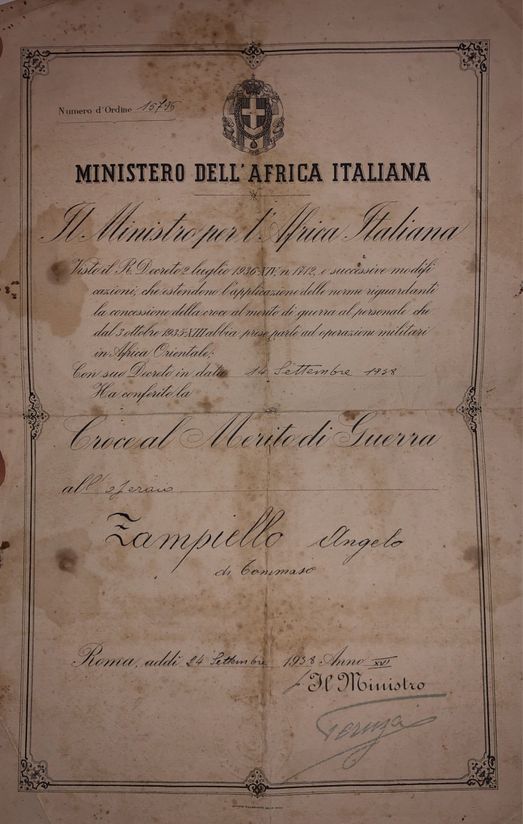 Numero d'Ordine 15795
MINISTERO DELL'AFRICA ITALIANA
Il Ministro per l'Africa Italiana
Visto il R. Decreto 2 luglio 1936-XIV, n. 1712, e successive modifi
cazioni, che estendono l'applicazione delle norme riguardanti
la concessione della croce al merito di guerra al personale che
dal 3 ottobre 1935-XIII abbia preso parte ad operazioni militari
in Africa Orientale;
Con suo Decreto in data 14 Settembre 1938
Ha conferito la
Croce al Merito di Guerra
all'operaio
Zampiello Angelo
di Tommaso
Roma, addì 24 Settembre 1938 Anno XVI
Il Ministro